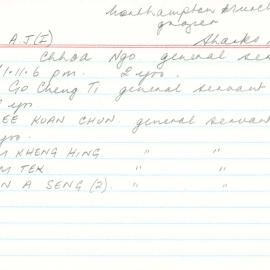 Northampton & Murch
grazier
A.J (I) Sharks
Chhoa Ngo general ser
1.11.6 pm. 2 yrs.
Go Cheng Ti general servant
yrs
EE KOAN CHUN. general servant
yrs.
M KHENG HING " "
M TEK " "
N A SENG (2). " "